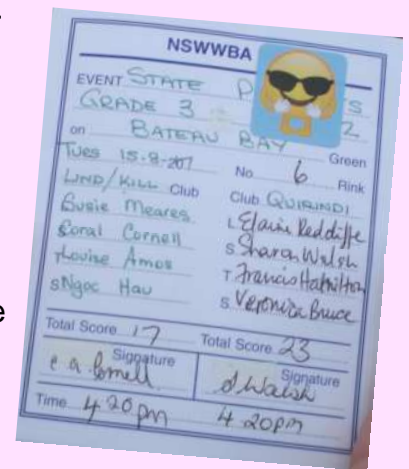 NSWWBA
EVENT STATE P S
GRADE 3 2
on BATEAU BAY Green
Tues 15-8-207 No 6 Rink
LIND/KILL Club Club QUIRINDI
Susie Meares L Elaine Reddiffe
Coral Cornell S Sharon Walsh
TLouise Amos T Francis Hamilton
SNgoc Hau S Veronica Bruce
Total Score 17 Total Score 23
Signature Signature
Time 4.20pm 4.20pm